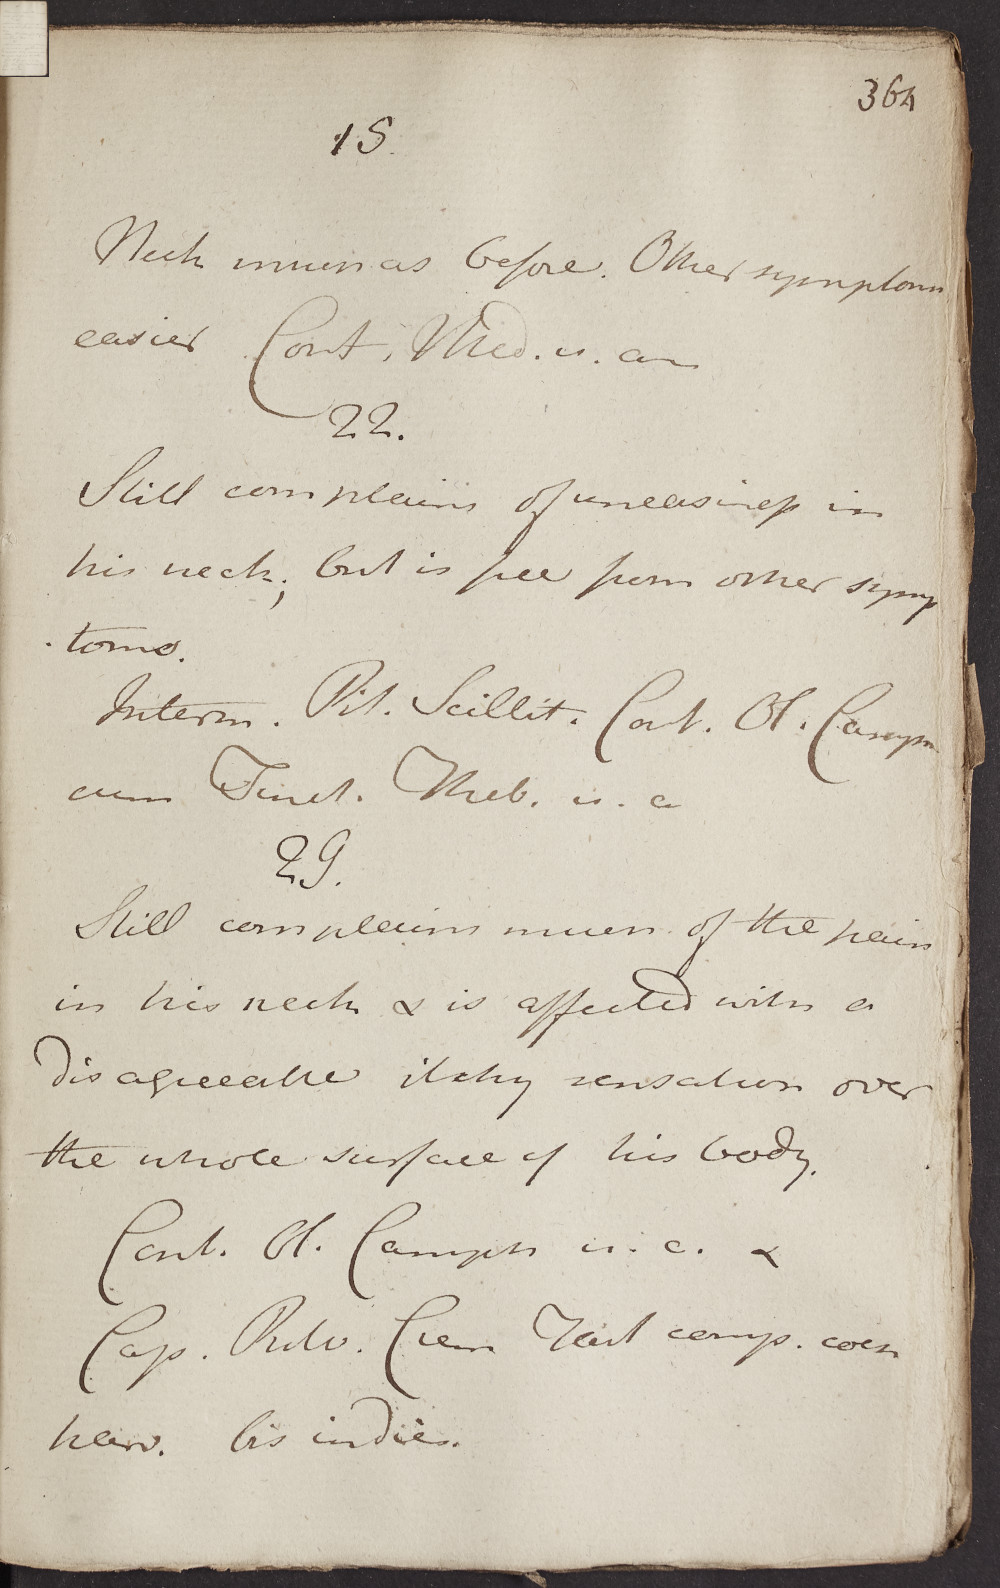 364
15.
Neck much as before. Other symptoms
easier Cont. Med. u. an
22.
Still complains of uneasiness in
his neck; but is free from other symp
-toms.
Interm. Pil. Scillit. Cont. Ol. Camph
cum Tinct. Theb. u. a
29.
Still complains much of the pain
in his neck & is affected with a
disagreeable itchy sensation over
the whole surface of his body.
Cont. Ol. Camph u. a. &
Cap. Pulv. Crem Tart comp. coch
parv. bis indies.